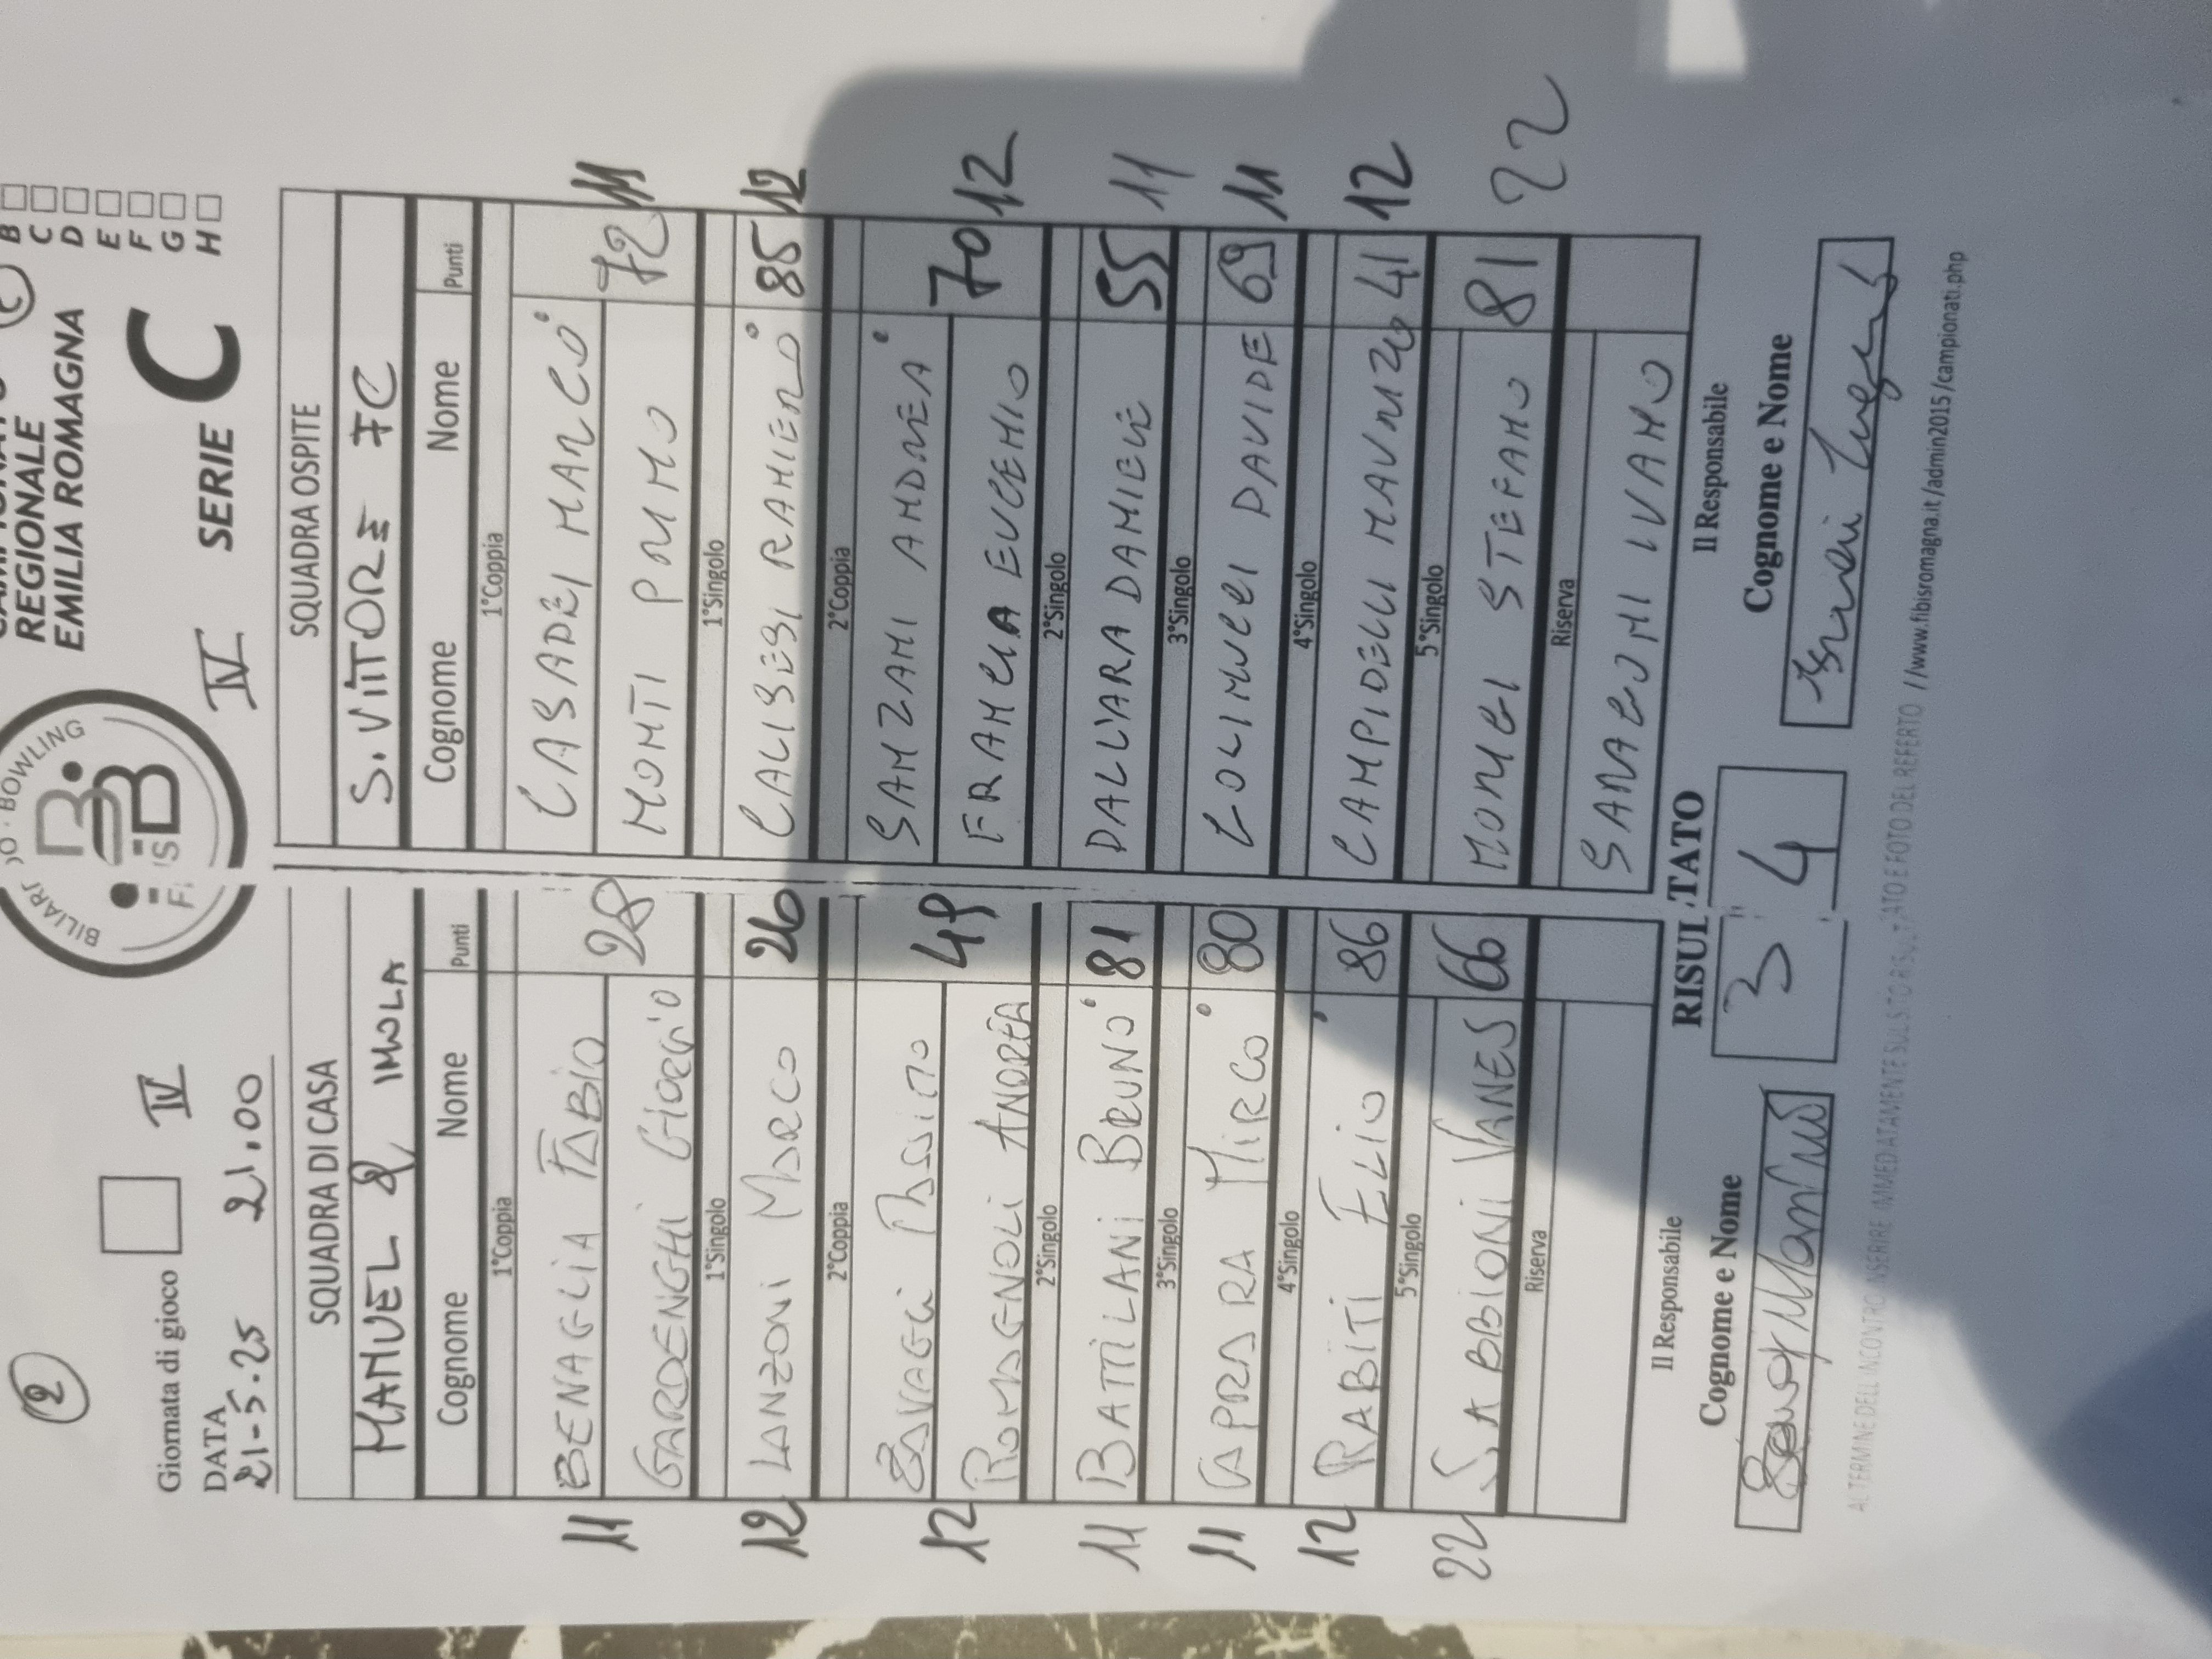 2
BILIARDO · BOWLING
FISB
REGIONALE
EMILIA ROMAGNA
C
B
C
D
E
F
G
H
Giornata di gioco IV
DATA
21-5.25 21.00
IV SERIE C
SQUADRA DI CASA SQUADRA OSPITE
MANUEL 2, IMOLA S. VITTORE 7C
Cognome Nome Punti Cognome Nome Punti
1°Coppia 1°Coppia
BENAGLIA FABIO CASADEI MARCO
11 GARDENGHI GIORGIO 28 MONTI PRIMO 72 11
1°Singolo 1°Singolo
12 LANZONI MARCO 26 CALISESI RANIERO 85 12
2°Coppia 2°Coppia
SANZANI ANDREA
12 ROMAGNOLI ANDREA 49 EUGENIO 70 12
2°Singolo 2°Singolo
11 BATTILANI BRUNO 81 DALL'ARA DANIELE 55 11
3°Singolo 3°Singolo
11 CAPRARA MIRCO 80 COLINUCCI DAVIDE 69 11
4°Singolo 4°Singolo
12 RABITI ELIO 86 CAMPIDELLI MAURIZIO 41 12
5°Singolo 5°Singolo
22 SABBIONI VANES 66 STEFANO 81 22
Riserva Riserva
IVANO
Il Responsabile RISULTATO Il Responsabile
Cognome e Nome 3 4 Cognome e Nome
AL TERMINE DELL'INCONTRO INSERIRE IMMEDIATAMENTE SUL SITO RISULTATO E FOTO DEL REFERTO //www.fibisromagna.it/admin2015/campionati.php